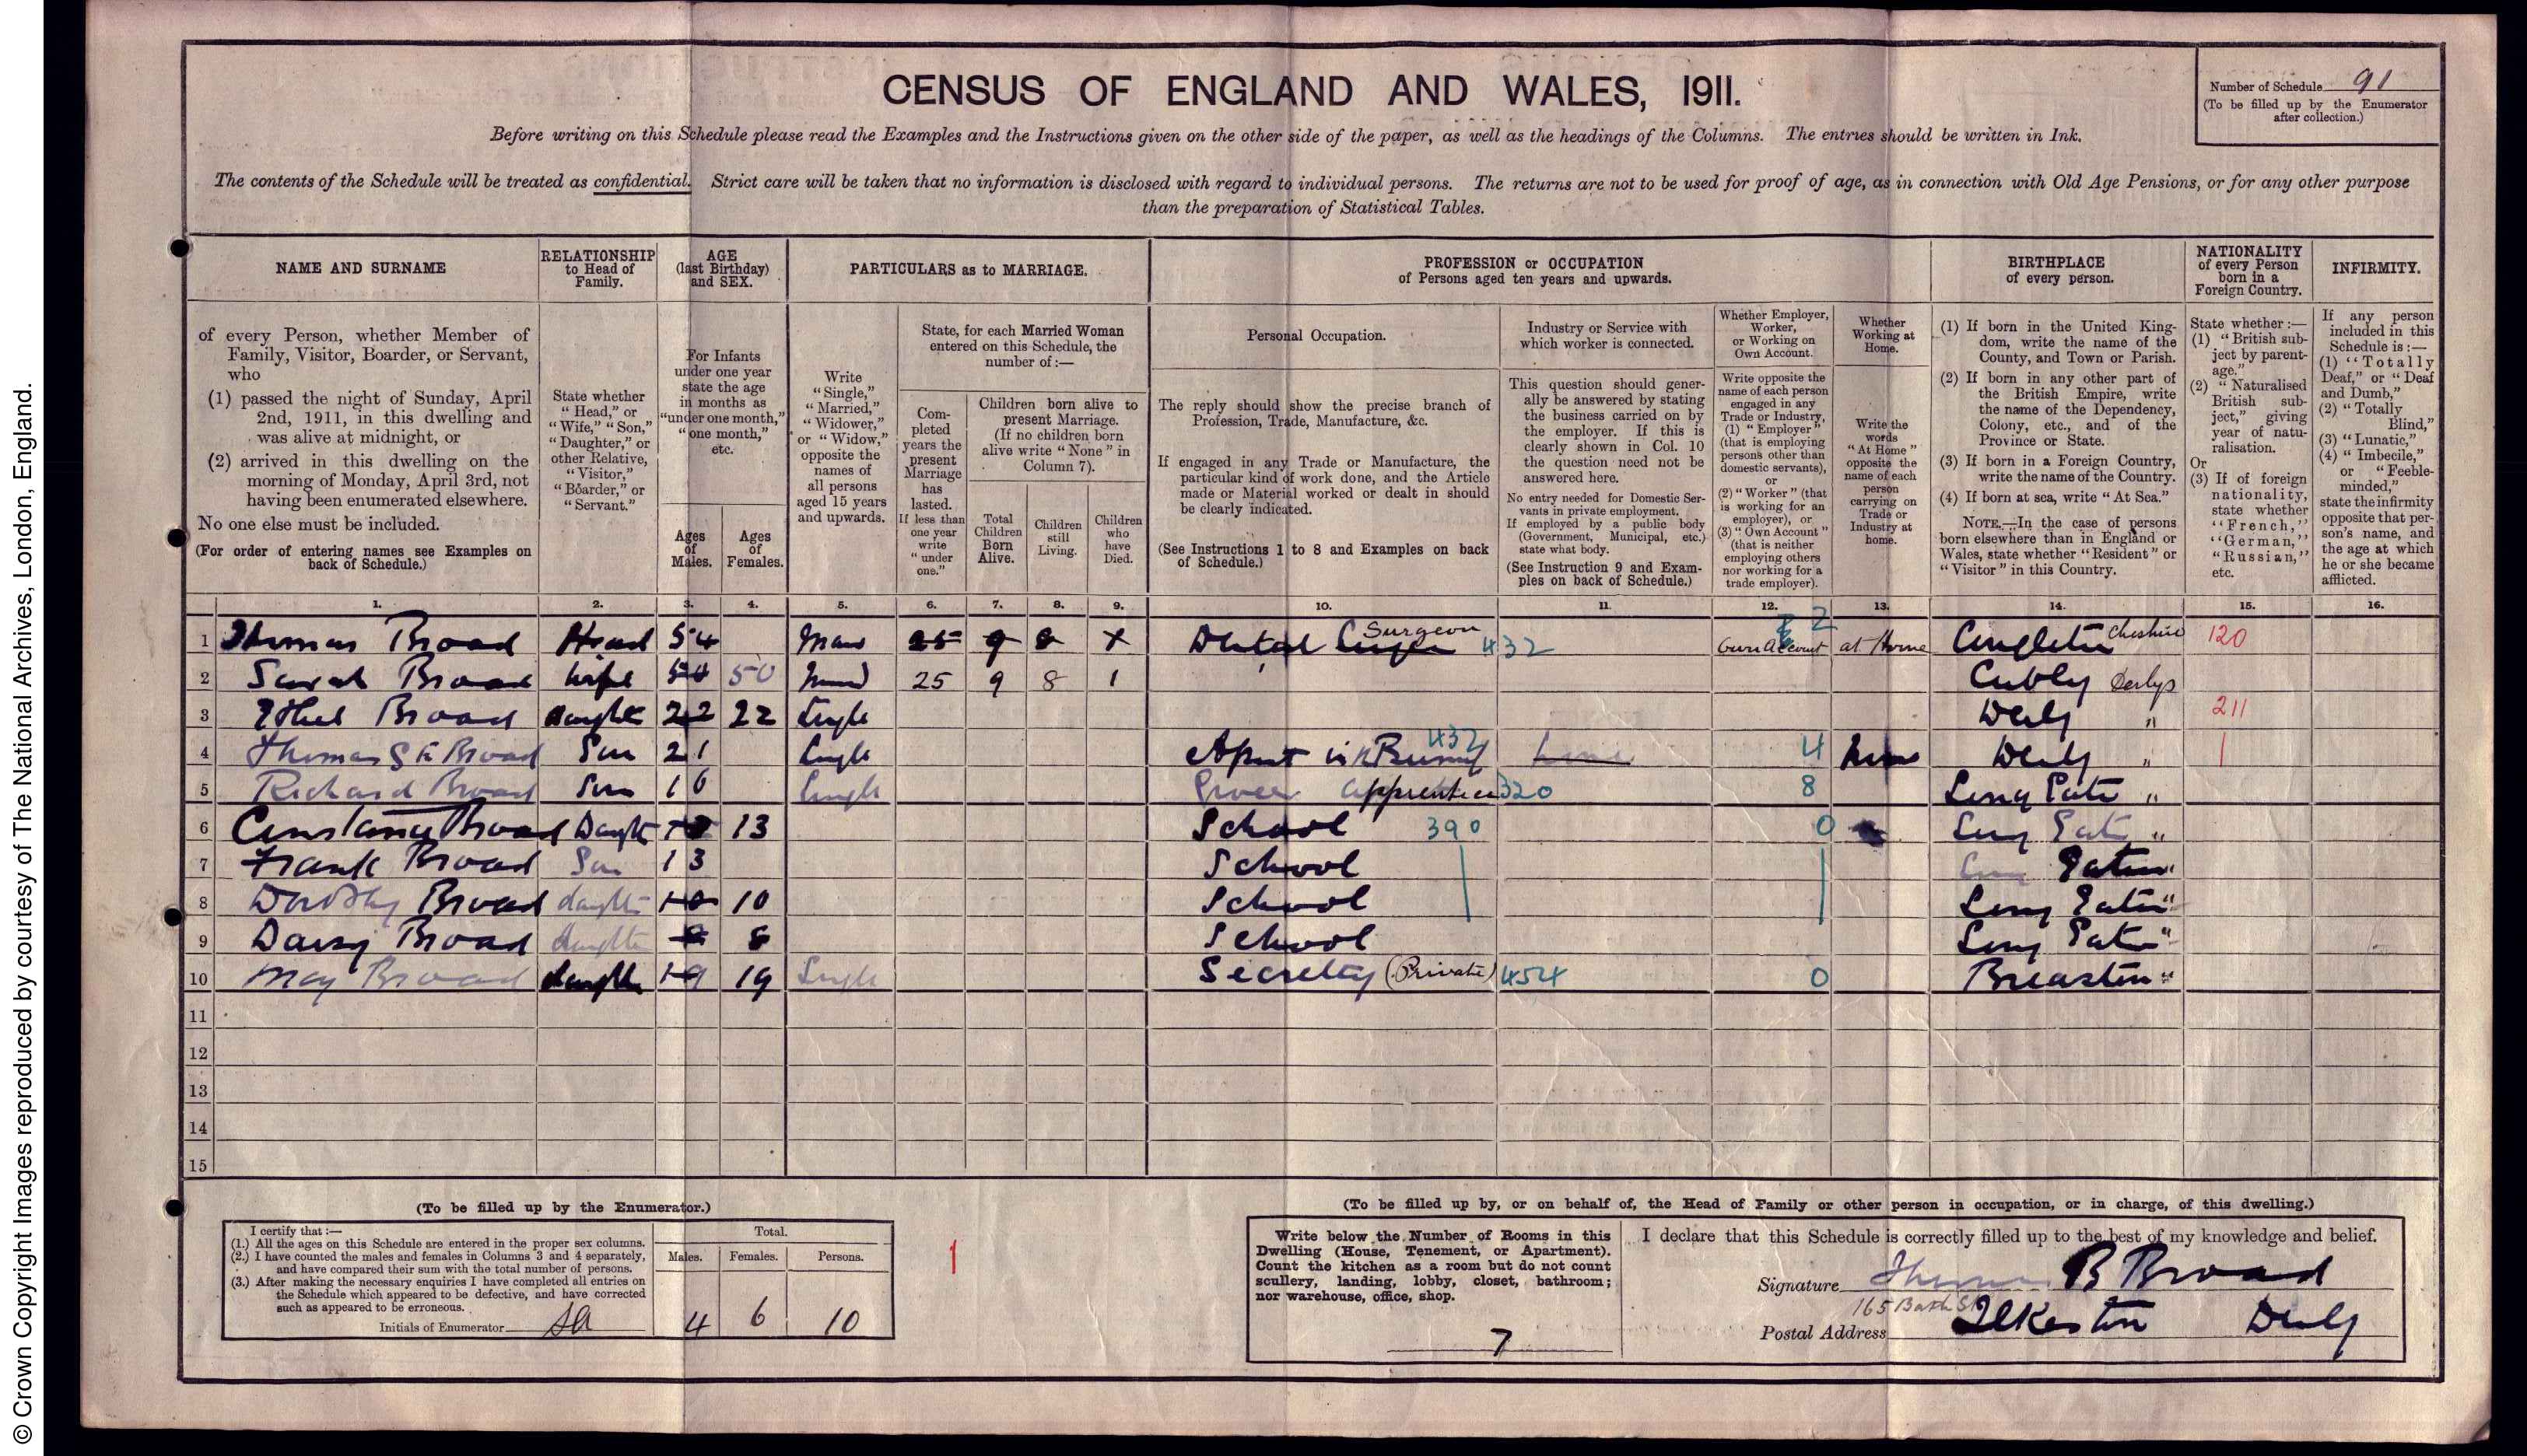 CENSUS OF ENGLAND AND WALES, 1911.
Number of Schedule 91
(To be filled up by the Enumerator after collection.)
Before writing on this Schedule please read the Examples and the Instructions given on the other side of the paper, as well as the headings of the Columns. The entries should be written in Ink.
The contents of the Schedule will be treated as confidential. Strict care will be taken that no information is disclosed with regard to individual persons. The returns are not to be used for proof of age, as in connection with Old Age Pensions, or for any other purpose
than the preparation of Statistical Tables.
NAME AND SURNAME
of every Person, whether Member of
Family, Visitor, Boarder, or Servant,
who
(1) passed the night of Sunday, April
2nd, 1911, in this dwelling and
was alive at midnight, or
(2) arrived in this dwelling on the
morning of Monday, April 3rd, not
having been enumerated elsewhere.
No one else must be included.
(For order of entering names see Examples on
back of Schedule.)
RELATIONSHIP
to Head of
Family.
State whether
"Head," or
"Wife," "Son,"
"Daughter," or
other Relative,
"Visitor,"
"Boarder," or
"Servant."
AGE
(last Birthday)
and SEX.
For Infants
under one year
state the age
in months as
"under one month,"
"one month,"
etc.
Ages
of
Males.
Ages
of
Females.
PARTICULARS as to MARRIAGE.
Write
"Single,"
"Married,"
"Widower,"
or "Widow,"
opposite the
names of
all persons
aged 15 years
and upwards.
State, for each Married Woman
entered on this Schedule, the
number of:—
Com-
pleted
years the
present
Marriage
has
lasted.
If less than
one year
write
"under
one."
Children born alive to
present Marriage.
(If no children born
alive write "None" in
Column 7).
Total
Children
Born
Alive.
Children
still
Living.
Children
who
have
Died.
PROFESSION or OCCUPATION
of Persons aged ten years and upwards.
Personal Occupation.
The reply should show the precise branch of
Profession, Trade, Manufacture, &c.
If engaged in any Trade or Manufacture, the
particular kind of work done, and the Article
made or Material worked or dealt in should
be clearly indicated.
(See Instructions 1 to 8 and Examples on back
of Schedule.)
Industry or Service with
which worker is connected.
This question should gener-
ally be answered by stating
the business carried on by
the employer. If this is
clearly shown in Col. 10
the question need not be
answered here.
No entry needed for Domestic Ser-
vants in private employment.
If employed by a public body
(Government, Municipal, etc.)
state what body.
(See Instruction 9 and Exam-
ples on back of Schedule.)
Whether Employer,
Worker,
or Working on
Own Account.
Write opposite the
name of each person
engaged in any
Trade or Industry,
(1) "Employer"
(that is employing
persons other than
domestic servants),
or
(2) "Worker" (that
is working for an
employer), or
(3) "Own Account"
(that is neither
employing others
nor working for a
trade employer).
Whether
Working at
Home.
Write the
words
"At Home"
opposite the
name of each
person
carrying on
Trade or
Industry at
home.
BIRTHPLACE
of every person.
(1) If born in the United King-
dom, write the name of the
County, and Town or Parish.
(2) If born in any other part of
the British Empire, write
the name of the Dependency,
Colony, etc., and of the
Province or State.
(3) If born in a Foreign Country,
write the name of the Country.
(4) If born at sea, write "At Sea."
NOTE.—In the case of persons
born elsewhere than in England or
Wales, state whether "Resident" or
"Visitor" in this Country.
NATIONALITY
of every Person
born in a
Foreign Country.
State whether:—
(1) "British sub-
ject by parent-
age."
(2) "Naturalised
British sub-
ject," giving
year of natu-
ralisation.
Or
(3) If of foreign
nationality,
state whether
"French,"
"German,"
"Russian,"
etc.
INFIRMITY.
If any person
included in this
Schedule is:—
(1) "Totally
Deaf," or "Deaf
and Dumb,"
(2) "Totally
Blind,"
(3) "Lunatic,"
(4) "Imbecile,"
or "Feeble-
minded,"
state the infirmity
opposite that per-
son's name, and
the age at which
he or she became
afflicted.
1. 2. 3. 4. 5. 6. 7. 8. 9. 10. 11. 12. 13. 14. 15. 16.
1 Thomas Broad Head 54 25 9 8 X Dental Surgeon 432 2 Own Account at Home Congleton Cheshire 120
2 Sarah Broad Wife 54 50 25 9 8 1 Cubly Derbys
3 Ethel Broad daughter 22 22 Single Derby " 211
4 Thomas S Broad Son 21 Single 432 4 Home Derby " 1
5 Richard Broad Son 16 Single Grocer apprentice 320 8 Long Eaton "
6 Constance Broad Daught 13 School 390 0 Long Eaton "
7 Frank Broad Son 13 School Long Eaton "
8 Dorothy Broad daughter 10 10 School Long Eaton "
9 Daisy Broad daughter 8 8 School Long Eaton "
10 May Broad daughter 19 19 Single Secretry (Private) 454 0 Breaston "
11
12
13
14
15
(To be filled up by the Enumerator.)
I certify that:—
(1.) All the ages on this Schedule are entered in the proper sex columns.
(2.) I have counted the males and females in Columns 3 and 4 separately,
and have compared their sum with the total number of persons.
(3.) After making the necessary enquiries I have completed all entries on
the Schedule which appeared to be defective, and have corrected
such as appeared to be erroneous.
Initials of Enumerator
Total.
Males. Females. Persons.
4 6 10
1
(To be filled up by, or on behalf of, the Head of Family or other person in occupation, or in charge, of this dwelling.)
Write below the Number of Rooms in this
Dwelling (House, Tenement, or Apartment).
Count the kitchen as a room but do not count
scullery, landing, lobby, closet, bathroom;
nor warehouse, office, shop.
7
I declare that this Schedule is correctly filled up to the best of my knowledge and belief.
Signature Thomas B Broad
165 Bath St
Postal Address Ilkeston Derby
© Crown Copyright Images reproduced by courtesy of The National Archives, London, England.